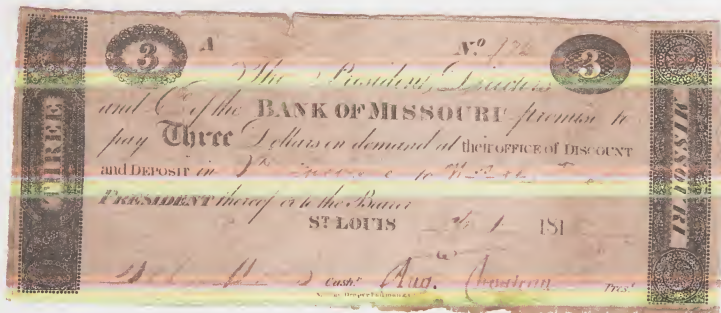 3 A Nº 3
The President, Directors
and Co of the BANK OF MISSOURI promise to
pay Three Dollars on demand at their OFFICE of DISCOUNT
and DEPOSIT in to
PRESIDENT thereof or to the Bearer
ST LOUIS 1 181
Cashr Aug. Chouteau Prest
THREE
MISSOURI